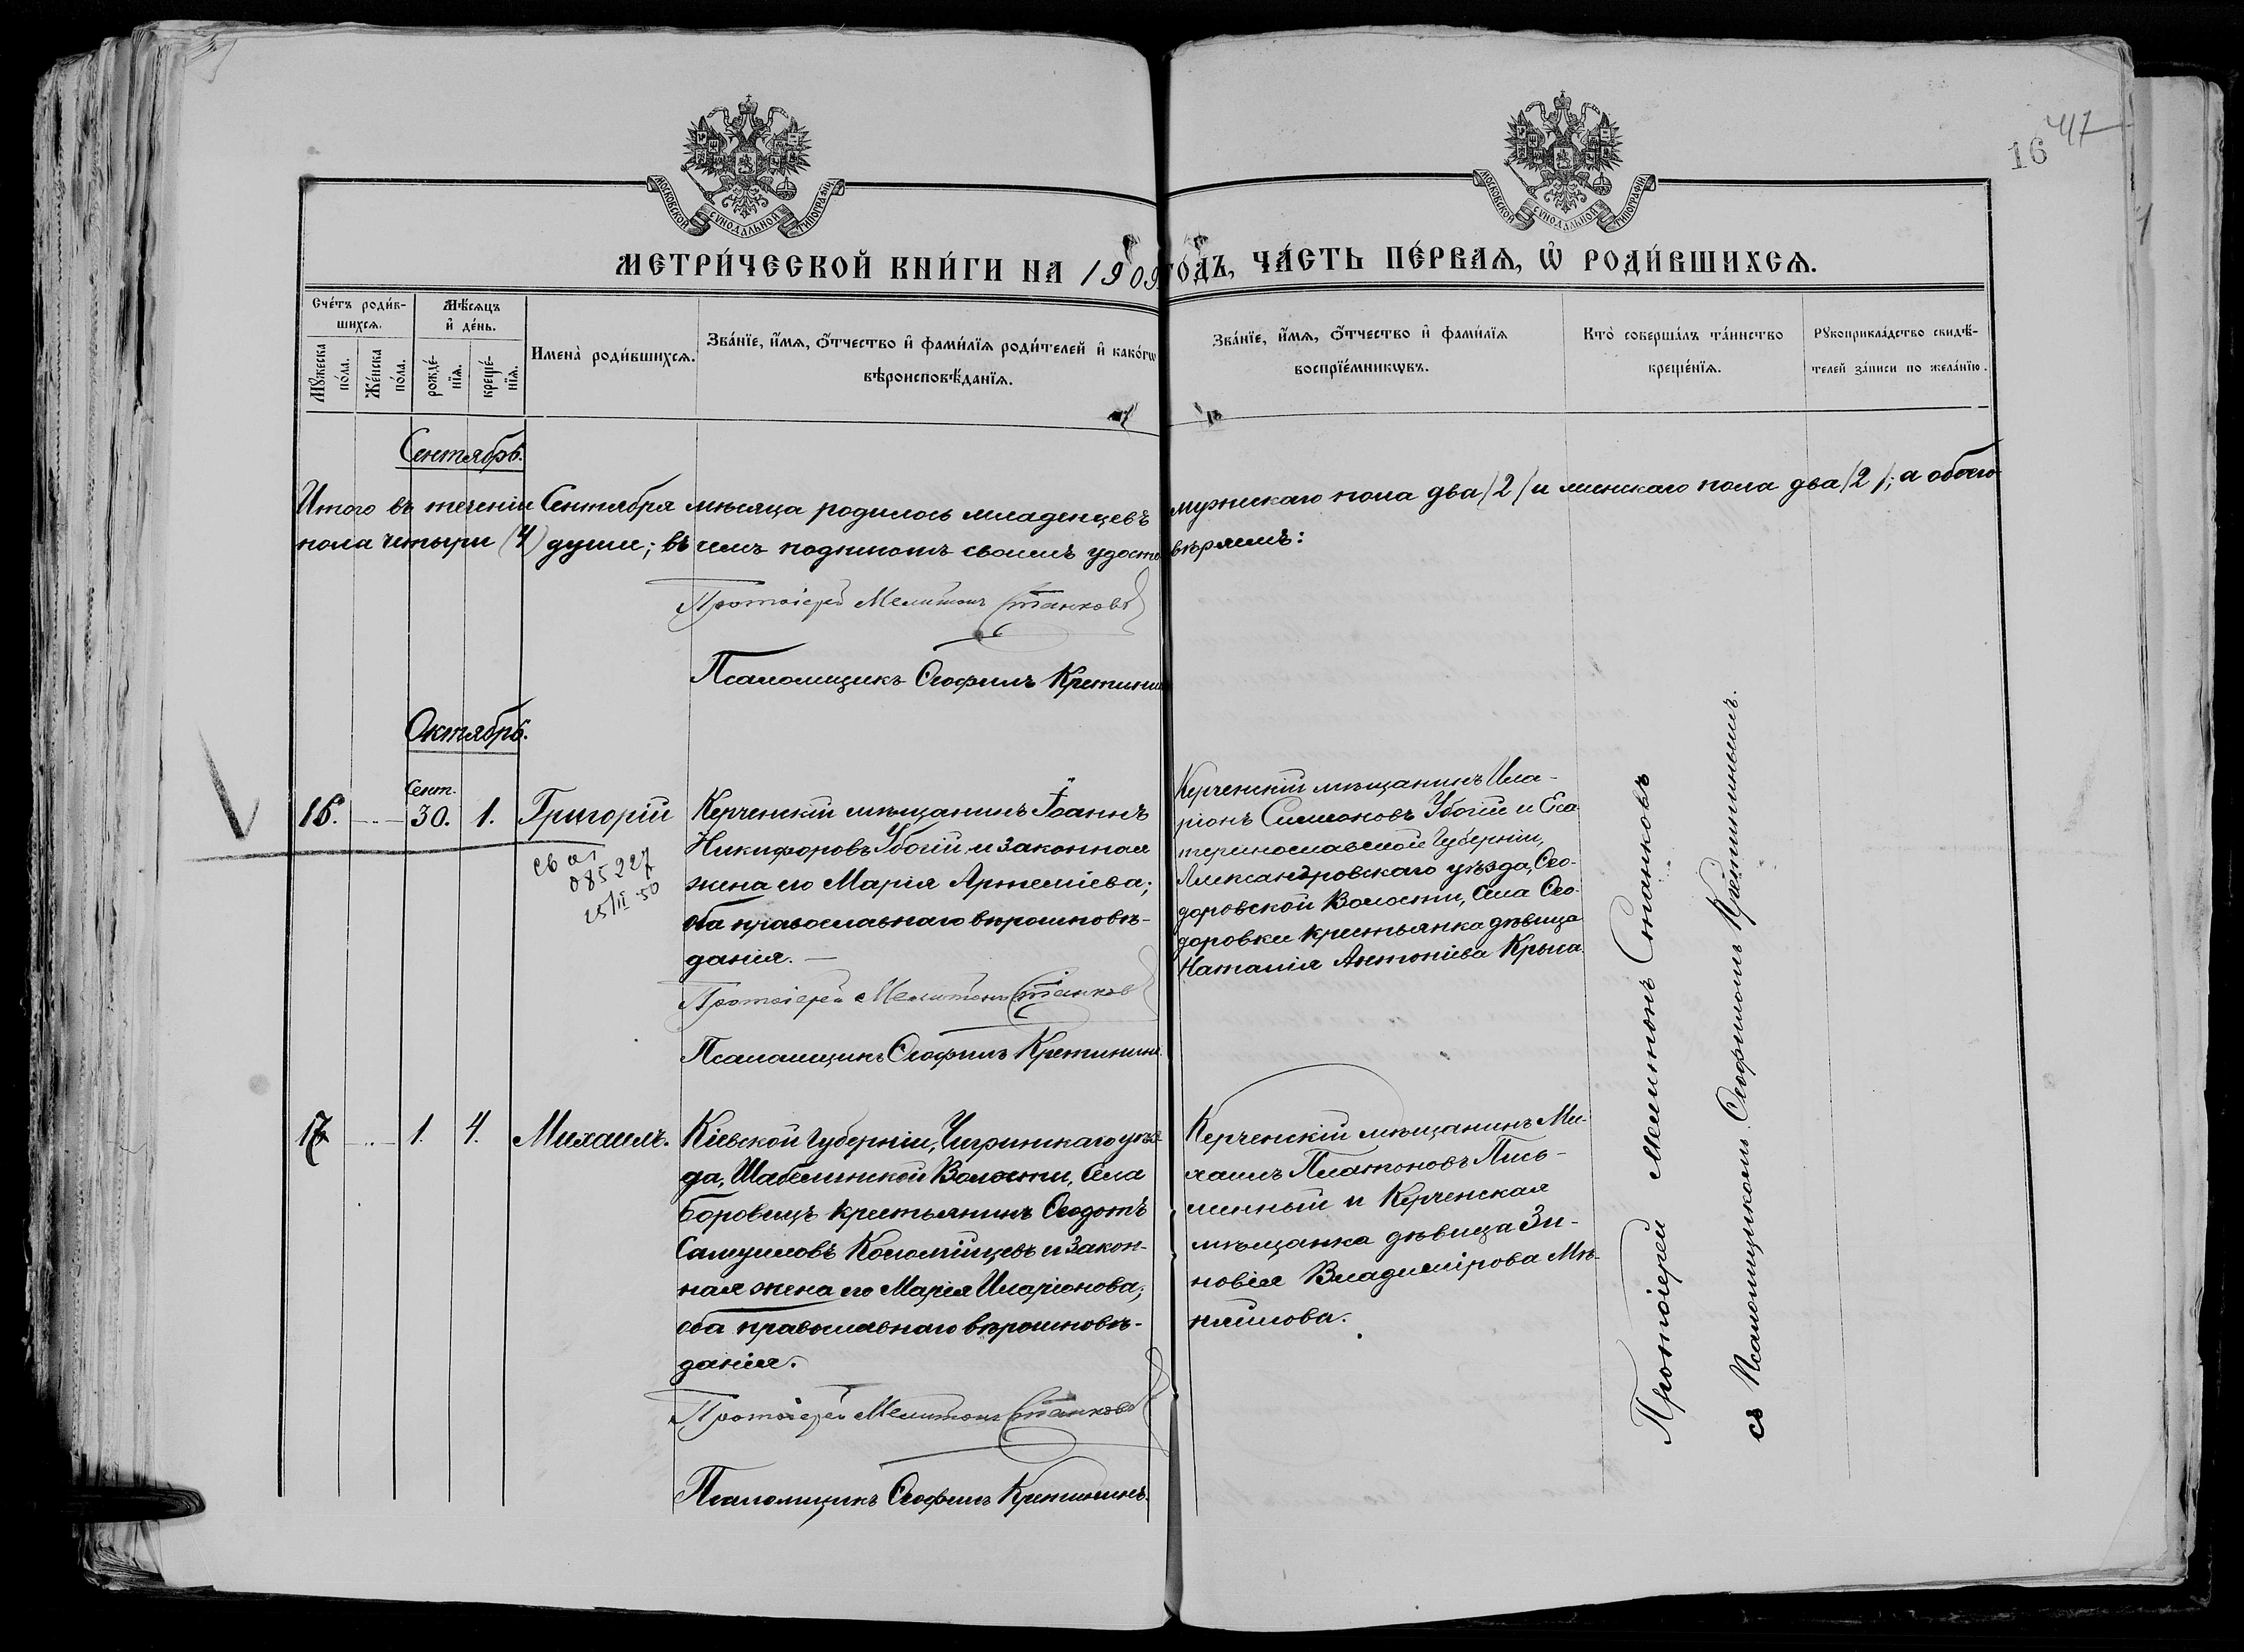 16 47
МОСКОВСКОЙ СѴНОДАЛЬНОЙ ТИПОГРАФІИ
МОСКОВСКОЙ СѴНОДАЛЬНОЙ ТИПОГРАФІИ
МЕТРИ́ЧЕСКОЙ КНИ́ГИ НА 1909 ГО́ДЪ, ЧА́СТЬ ПЕ́РВАѦ, Ѡ҆ РОДИ́ВШИХСѦ.
Сче́тъ роди́в-
шихсѧ.
Мꙋ́жеска по́ла.
Же́нска по́ла.
Мѣ́сѧцъ
и҆ де́нь.
рожде́-
нїѧ.
креще́-
нїѧ.
Имена̀ роди́вшихсѧ.
Зва́нїе, и҆́мѧ, ѻ҆́тчество и҆ фами́лїѧ роди́телей и҆ како́гѡ
вѣроисповѣ́данїѧ.
Зва́нїе, и҆́мѧ, ѻ҆́тчество и҆ фами́лїѧ
воспрїе́мникѡвъ.
Кто̀ соверша́лъ та́инство
креще́нїѧ.
Рꙋкоприкла́дство свидѣ́-
телей за́писи по жела́нїю.
Сентябрь.
Итого въ теченіи Сентября мѣсяца родилось младенцевъ мужскаго пола два /2/ и женскаго пола два /2/; а обоего
пола четыри (4) души; въ чемъ подписомъ своимъ удостовѣряемъ:
Протоіерей Мелитонъ Станковъ
Псаломщикъ Ѳеофилъ Кретининъ
Октябрь.
Сент.
16. 30. 1. Григорій
Керченскій мѣщанинъ Іоаннъ
Никифоровъ Убогій и законная
жена его Марія Артеміева;
оба православнаго вѣроисповѣ-
данія. —
Протоіерей Мелитонъ Станковъ
Псаломщикъ Ѳеофилъ Кретининъ.
085227
25/II 50
Керченскій мѣщанинъ Ила-
ріонъ Симоновъ Убогій и Ека-
теринославской Губерніи,
Александровскаго уѣзда, Ѳео-
доровской Волости, села Ѳео-
доровки крестьянка дѣвица
Наталія Антоніева Крыса.
17 1. 4. Михаилъ.
Кіевской Губерніи, Чигринскаго уѣз-
да, Шабельникой Волости, села
Боровицъ крестьянинъ Ѳеодотъ
Самуиловъ Коломійцевъ и закон-
ная жена его Марія Иларіонова;
оба православнаго вѣроисповѣ-
данія.
Протоіерей Мелитонъ Станковъ
Псаломщикъ Ѳеофилъ Кретининъ.
Керченскій мѣщанинъ Ми-
хаилъ Платоновъ Пись-
менный и Керченская
мѣщанка дѣвица Зи-
новія Владимірова Мѣ-
няйлова.
Протоіерей Мелитонъ Станковъ
съ Псаломщикомъ Ѳеофиломъ Кретининымъ.